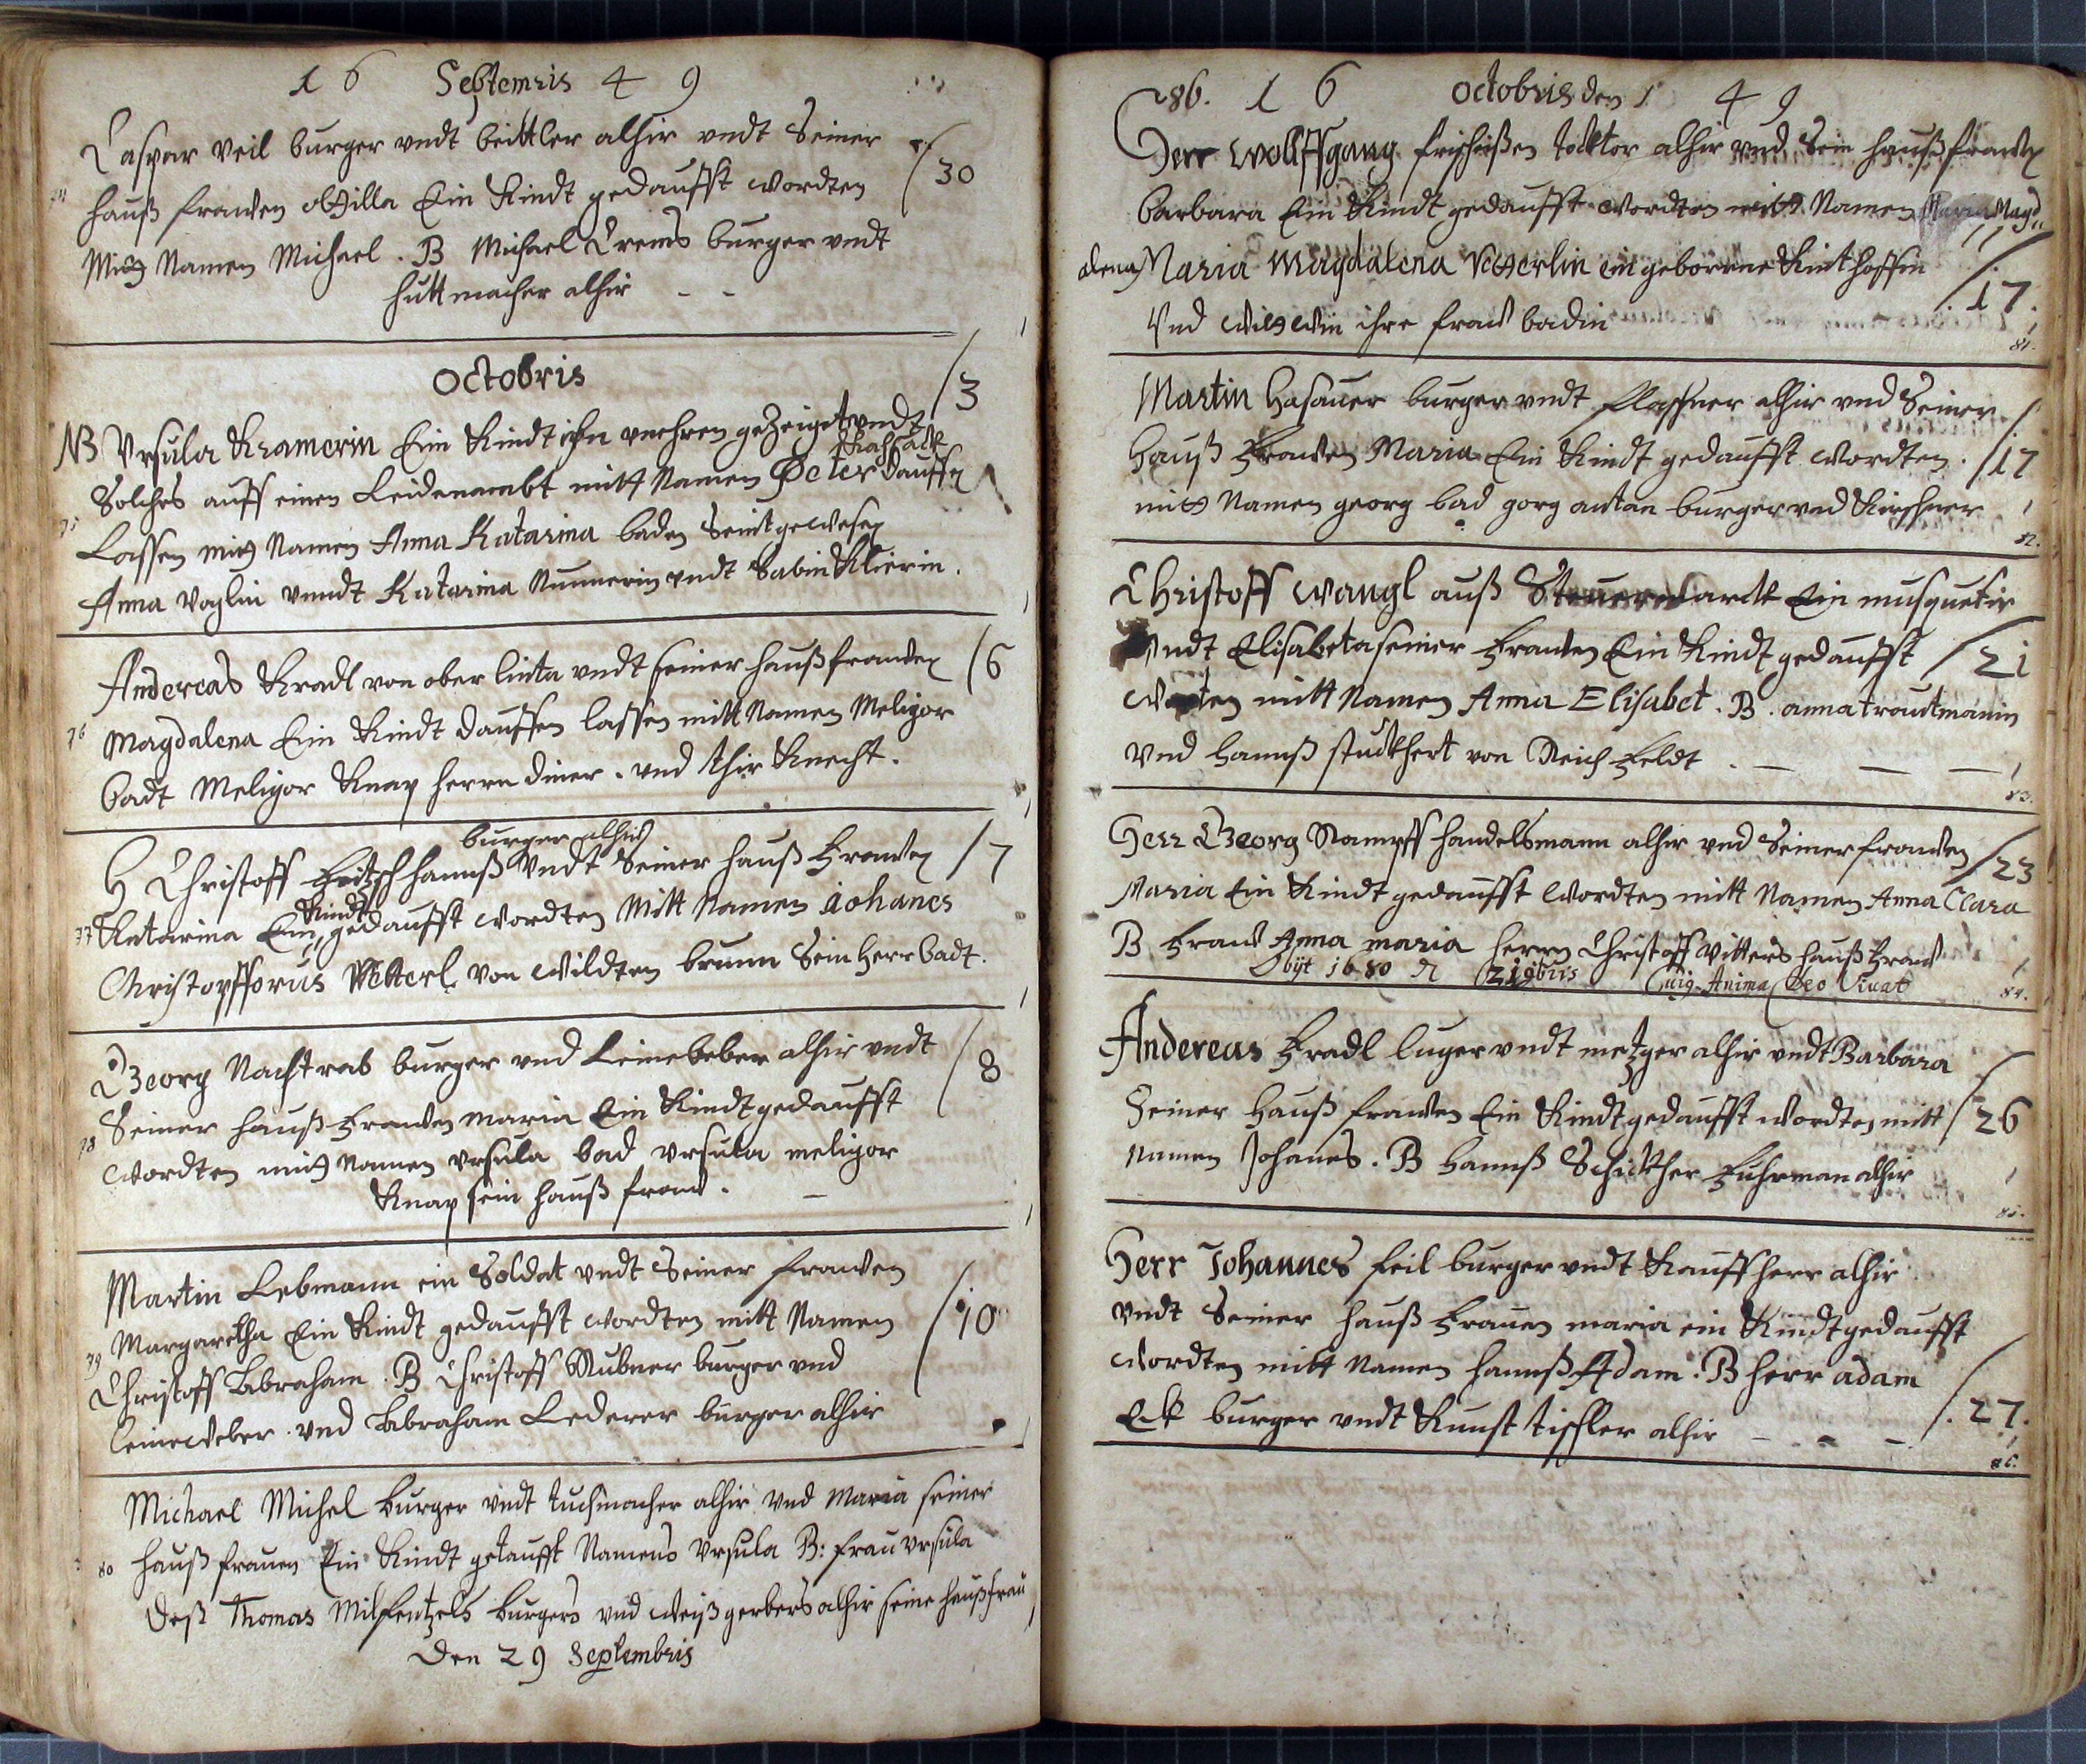 16 Septemris 49
Caspar Veil burger vndt beittler alhir vndt Seiner
30
74 hauß frawen ottilla Ein Kindt gedaufft wordten
Mitt Namen Michael . B Michael Crems burger vndt
huttmacher alhir - -
octobris
3
NB Vrsula Kramerin Ein Kindt gezeigt vndt
Solches auff einen Leidenambt mitt Namen Peter dauffen
75 Lassen mitt Namen Anna Katarina baden Seint gewesen
Anna voglin vnndt Katarina Nunnerin vndt Sabin Klierin .
Andereas Kradl von ober linta vndt seiner haußfrawen 6
76 Magdalena Ein Kindt dauffen lassen mitt Namen Meligor
badt Meligor Knap herrn diner . vnd thir Knecht .
burger alhir
H Christoff Fritzsch hannß Vndt Seiner hauß Frawen 7
Kindt
77 Katarina Ein gedaufft wordten Mitt Namen iohanes
Christopfforus Vetterl von Wildten brunn Sein Herr badt .
Georg Nachtrab burger vnd Leinebeber alhir vndt 8
Seiner hauß Frawen maria Ein Kindt gedaufft
78 wordten mitt Namen vrsula bad vrsula meligor
Knap sein hauß fraw . -
Martin Lebmann ein Soldat vndt Seiner frawen
Margaretha Ein Kindt gedaufft wordten mitt Namen 10
79 Christoff Abraham . B Christoff Wubner burger vnd
leineweber . vnd Abraham Lederer burger alhir
Michael Michel burger vndt tuchmacher alhir vnd Maria seiner
80 hauß frauen Ein Kindt getaufft Namens Vrsula B: frau Vrsula
deß Thomas Milfentzels burgers vnd weißgerbers alhir seine haußfrau
Den 29 Septembris
286. 16 octobris den 1 49
Herr Wollffgang tocktor alhir vnd Sein haußfrawen
barbara Ein Kindt gedaufft wordten mitt Namen Maria Magda
alena Maria Magdalena Vetterlin ein geborrne Kinthoffin
17.
Vnd witwin ihre fraw badin
81.
Martin Hasauer burger vndt flaschner alhir vnd Seiner
Hauß Frawen Maria Ein Kindt gedaufft wordten . 17
mitt Namen georg bad gorg antan burger vnd Kirschner
82.
Christoff Wangl auß Steuermarck Ein musquetir
Vndt Elisabeta seiner Frawen Ein Kindt gedaufft 21
worten mitt Namen Anna Elisabet . B . anna trautmanin
vnd hannß stuckhert von Reich Feldt . - - -
83.
Herr Georg Rampff handelsmann alhir vnd Seiner frawen 23
Maria Ein Kindt gedaufft wordten mitt Namen Anna Clara
B Fraw Anna maria herrn Christoff Vitters hauß Fraw
Obijt 1680 21 9bris Cuig Anima Deo Vivat
84.
Andereas Fradl luger vndt metzger alhir vndt Barbara
Seiner Hauß frawen Ein Kindt gedaufft wordten mitt 26
Namen Johanes . B Hannß Schickher Fuhrman alhir
85.
Herr Johannes feil burger vndt Kauffherr alhir
vndt Seiner hauß Frauen maria ein Kindt gedaufft
wordten mitt Namen hannß Adam . B herr adam
Eck burger vndt Kunst tischler alhir - - - 27.
86.